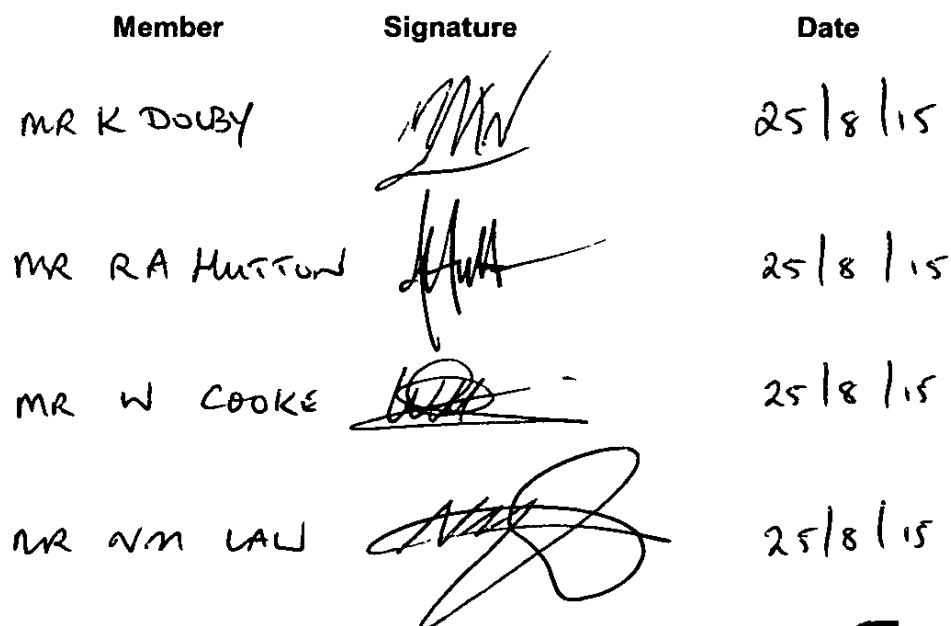 Member Signature Date
MR K DOLBY 25/8/15
MR RA HUTTON 25/8/15
MR W COOKE 25/8/15
MR NM LAW 25/8/15